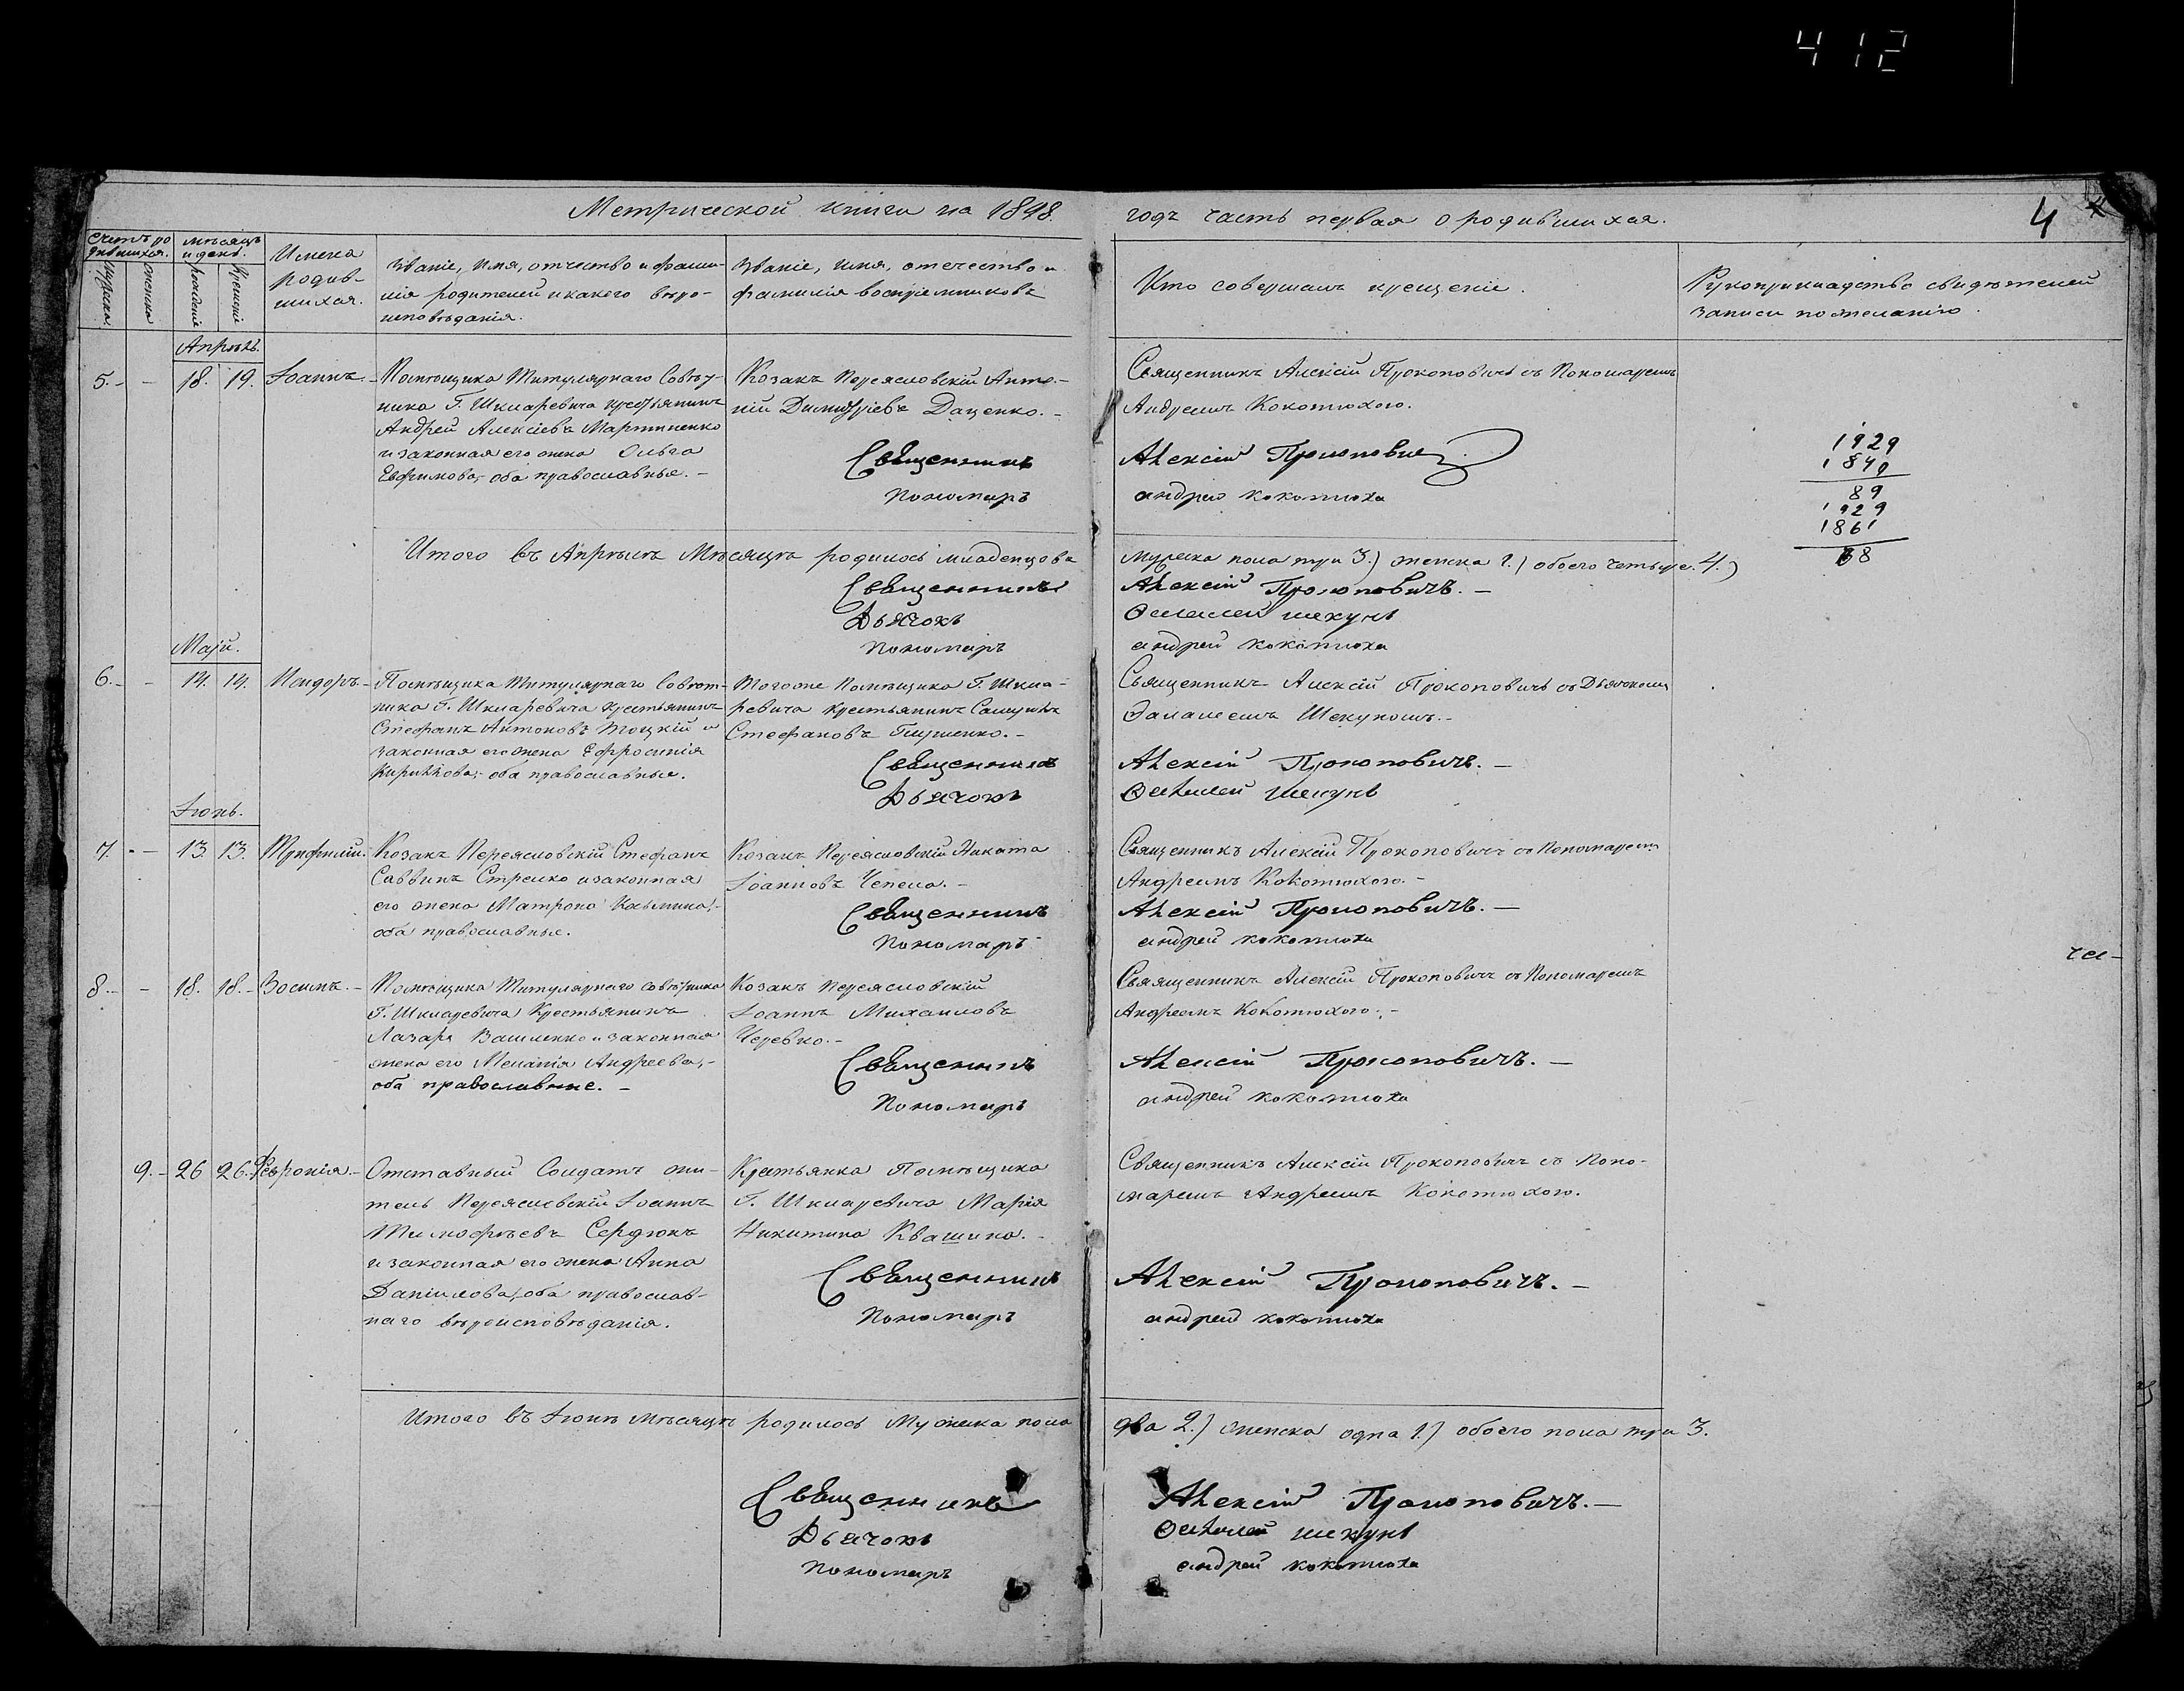 412
Метрической книги на 1848. годъ часть первая о родившихся.
4
Счетъ родившихся.
мужеска
женска
мѣсяцъ и день.
рожденія
крещенія
Имена
родив-
шихся.
Званіе, имя, отчество и фами-
лія родителей и какого вѣро-
исповѣданія.
Званіе, имя, отечество и
фамилія воспріемниковъ
Кто совершалъ крещеніе.
Рукоприкладство свидѣтелей
записи по желанію.
Апрѣль.
5. - - 18. 19. Іоаннъ.
Помѣщика Титулярнаго Совѣт-
ника Г. Шкляревича крестьянинъ
Андрей Алексіевъ Мартыненко
и законная его жена Ольга
Евфимова, оба православные. -
Козакъ Переясловскій Анто-
ній Димитріевъ Даценко. -
Священникъ
Пономарь
Священникъ Алексій Прокоповичъ съ Пономаремъ
Андреемъ Кокотюхою.
Алексій Прокопович
андрей кокотюха
1929
1840
89
1929
1861
68
Итого въ Апрѣлѣ Мѣсяцѣ родилось младенцовъ мужеска пола три 3.) женска 1.) обоего четыре. 4.)
Священникъ
Дьячокъ
Пономарь
Алексій Прокоповичъ. -
шекунъ
андрей кокотюха
Маій.
6. - - 14. 14. Исидоръ. -
Помѣщика Титулярнаго Совѣт-
ника Г. Шкляревича крестьянинъ
Стефанъ Антоновъ Троцкій и
законная его жена Ефросинія
Кириллова, оба православные.
Тогоже Помѣщика Г. Шкля-
ревича крестьянинъ
Стефановъ Глущенко. -
Священникъ
Дьячокъ
Священникъ Алексій Прокоповичъ съ Дьячкомъ
Шекуномъ. -
Алексій Прокоповичъ. -
шекунъ
Іюнь.
7. - - 13. 13. Трифилій.
Козакъ Переясловскій Стефанъ
Саввинъ Стрелко и законная
его жена Матрона Косьмина, -
оба православные.
Козакъ Переясловскій Никита
Іоанновъ Чепела. -
Священникъ
Пономарь
Священникъ Алексій Прокоповичъ съ Пономаремъ
Андреемъ Кокотюхою. -
Алексій Прокоповичъ. -
андрей кокотюха
8. - - 18. 18. - Зосимъ. -
Помѣщика Титулярнаго совѣтника
Г. Шкляревича Крестьянинъ
Лазарь Ващенко и законная
жена его Меланія Андреева, -
оба православные. -
Козакъ Переясловскій
Іоаннъ Михаиловъ
Черевко. -
Священникъ
Пономарь
Священникъ Алексій Прокоповичъ съ Пономаремъ
Андреемъ Кокотюхою. -
Алексій Прокоповичъ. -
андрей кокотюха
9. - 26 26. Февронія. -
Отставный Солдатъ жи-
тель Переясловскій Іоаннъ
Тимофѣевъ Сердюкъ
и законная его жена Анна
Даніилова, оба православ-
наго вѣроисповѣданія.
Крестьянка Помѣщика
Г. Шкляревича Марія
Никитина Квашина. -
Священникъ
Пономарь
Священникъ Алексій Прокоповичъ съ Поно-
маремъ Андреемъ Кокотюхою.
Алексій Прокоповичъ. -
андрей кокотюха
Итого въ Іюнѣ мѣсяцѣ родилось Мужеска пола два 2.) женска одна 1.) обоего пола три 3.
Священникъ
Дьячокъ
Пономарь
Алексій Прокоповичъ. -
шекунъ
андрей кокотюха